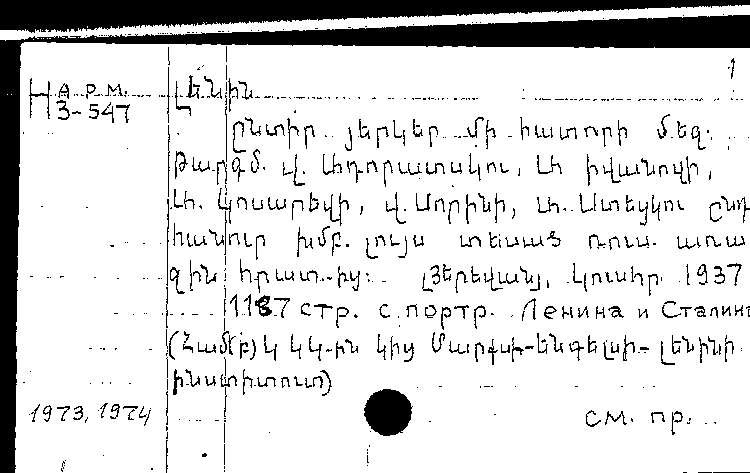 1
Н АРМ. 3-547
Լենին
ընտիր յերկեր մի հատորի մեջ։
թարգմ. վ.
կոսարեվի, վ. Սորինի, ընդ
հանուր խմբ. լույս տեսած ռուս. առա
ջին հրատ-ից։ [Յերեվան], կուսհր. 1937
1187 стр. с портр. Ленина и Сталина
(Համ(բ)կ կ կկ-ին կից Մարքսի-Ենգելսի-Լենինի
ինստիտուտ)
1973, 1974
см. пр.